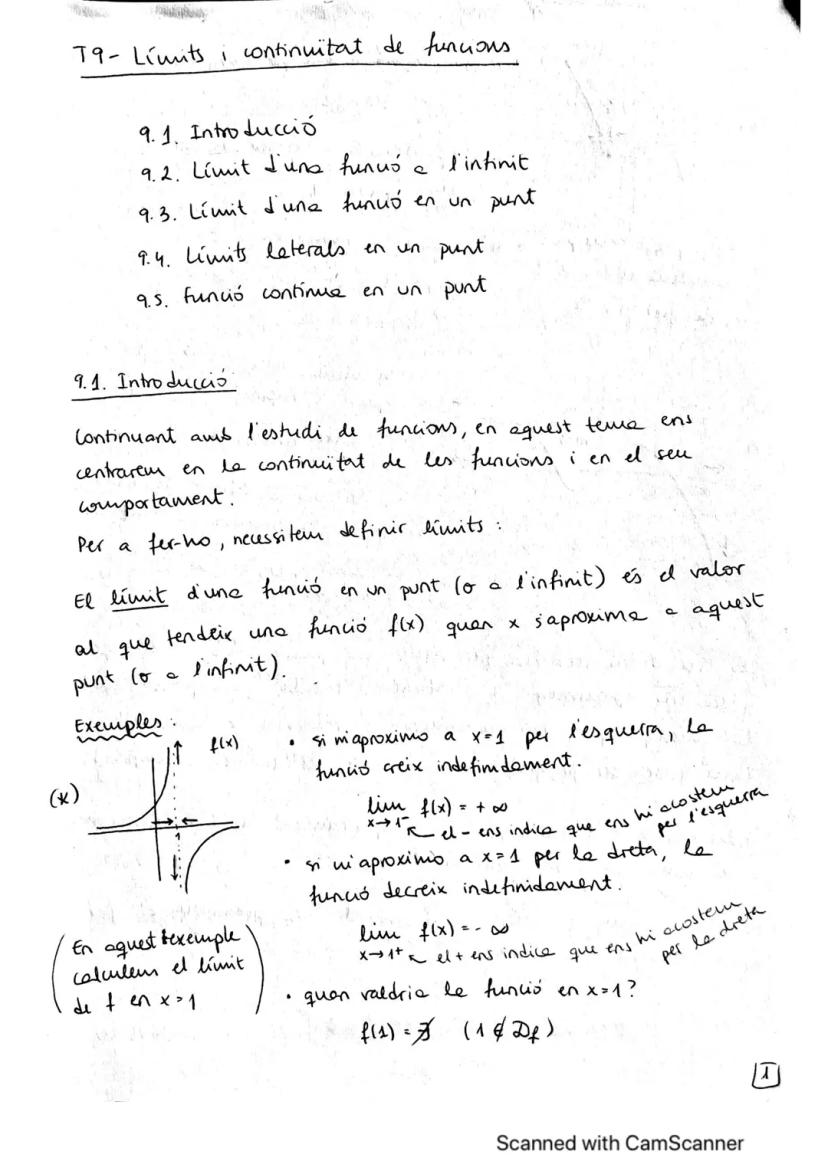 T9- Límits i continuïtat de funcions
9.1. Introducció
9.2. Límit d'una funció a l'infinit
9.3. Límit d'una funció en un punt
9.4. Límits laterals en un punt
9.5. Funció contínua en un punt
9.1. Introducció
Continuant amb l'estudi de funcions, en aquest tema ens
centrarem en la continuïtat de les funcions i en el seu
comportament.
Per a fer-ho, necessitem definir límits:
El límit d'una funció en un punt (o a l'infinit) és el valor
al que tendeix una funció f(x) quan x s'aproxima a aquest
punt (o a l'infinit).
Exemples:
(*)
f(x)
1
• si m'aproximo a x=1 per l'esquerra, la
funció creix indefinidament.
lim f(x) = +∞
x→1⁻
el - ens indica que ens hi acostem
per l'esquerra
• si m'aproximo a x=1 per la dreta, la
funció decreix indefinidament.
lim f(x) = -∞
x→1⁺
el + ens indica que ens hi acostem
per la dreta
(En aquest exemple
calculem el límit
de f en x=1)
• quan valdria la funció en x=1?
f(1) = ∄ (1 ∉ Df)
1
Scanned with CamScanner